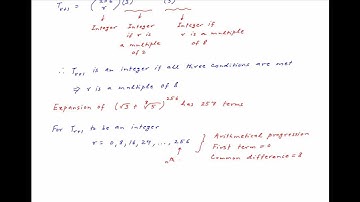 T r+1 = (256 r) (3) (5)
Integer Integer if r is a multiple of 2 Integer if r is a multiple of 8
∴ T r+1 is an integer if all three conditions are met
⇒ r is a multiple of 8
Expansion of (√3 + ⁸√5)²⁵⁶ has 257 terms
For T r+1 to be an integer
r = 0, 8, 16, 24, ..., 256
nth
Arithmetical progression
First term = 0
Common difference = 8